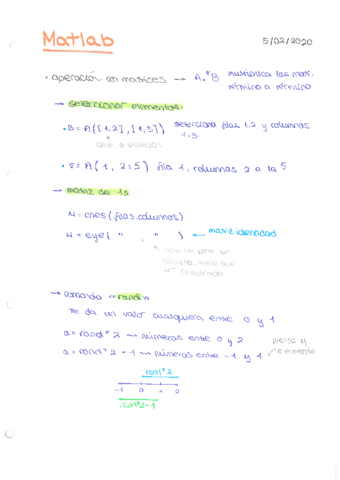 Matlab 5/02/2020
· operación con matrices → A.*B multiplica las matr.
término a término
→ seleccionar elementos:
· B = A([1,2],[1,3]) selecciona filas 1,2 y columnas
1,3.
· v = A(1, 2:5) fila 1, columnas 2 a la 5
→ matriz de 1s
M = ones(filas,columnas)
M = eye( " , " ) ← matriz identidad
→ comando «rand»
Te da un valor cualquiera entre 0 y 1
a = rand * 2 → números entre 0 y 2 piensa y
a = rand * 2 - 1 → números entre -1 y 1 se entiende
rand * 2
-1 0 1
rand*2-1